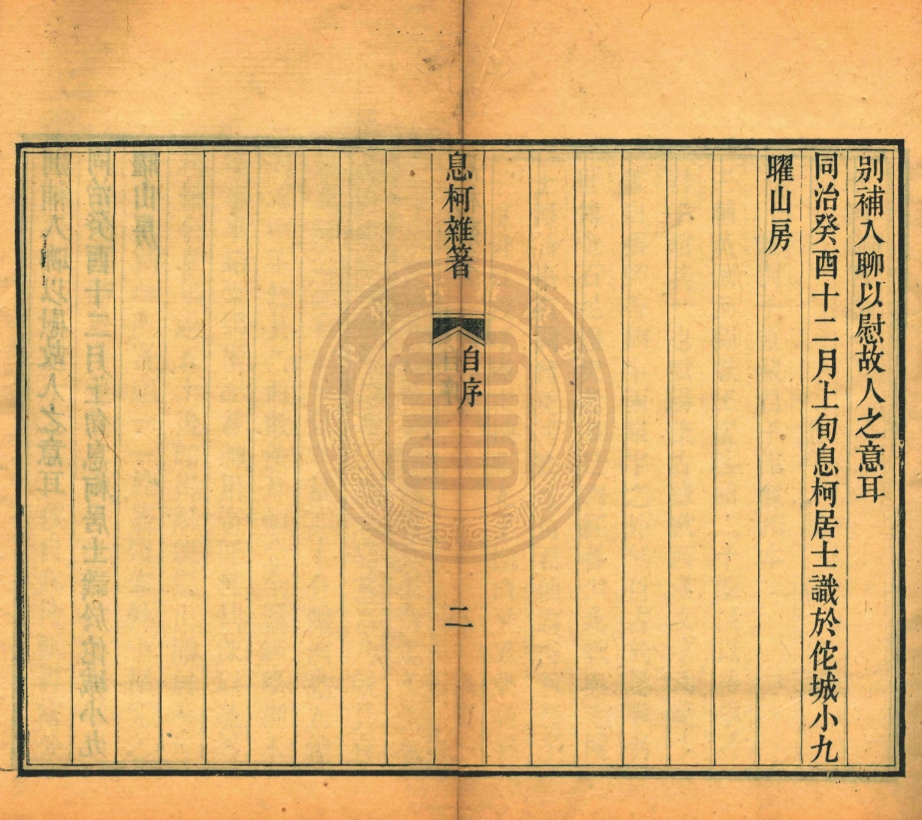 别補入聊以慰故人之意耳
同治癸酉十二月上旬息柯居士識於佗城小九
曜山房
息柯雜箸
自序
二